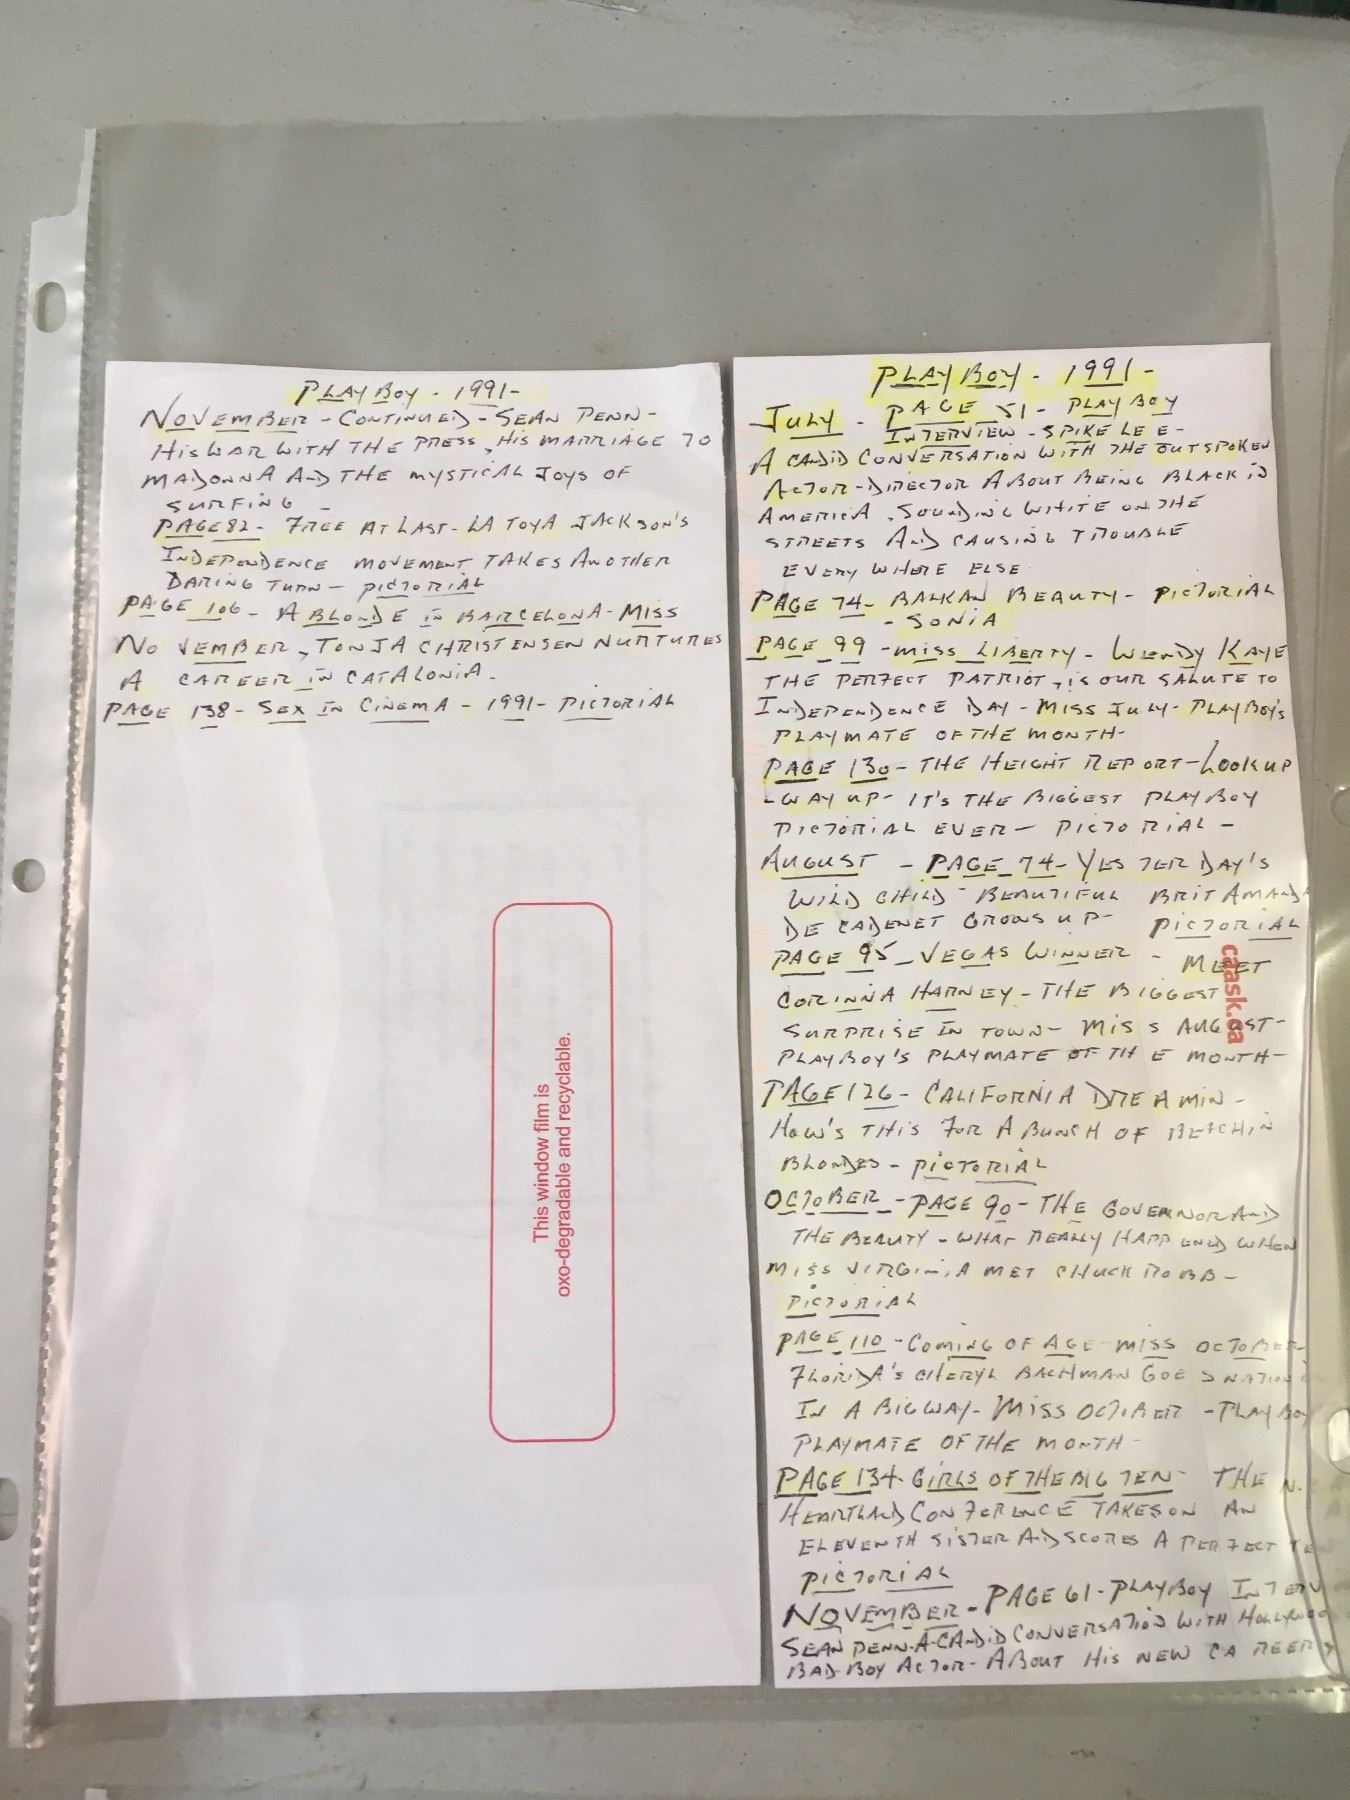 PLAYBOY - 1991-
NOVEMBER - CONTINUED - SEAN PENN-
HIS WAR WITH THE PRESS, HIS MARRIAGE TO
MADONNA AND THE MYSTICAL JOYS OF
SURFING -
PAGE 82- FREE AT LAST- LA TOYA JACKSON'S
INDEPENDENCE MOVEMENT TAKES ANOTHER
DARING TURN- PICTORIAL
PAGE 106- A BLONDE IN BARCELONA- MISS
NOVEMBER, TONJA CHRISTENSEN NURTURES
A CAREER IN CATALONIA.
PAGE 138- SEX IN CINEMA - 1991- PICTORIAL
This window film is
oxo-degradable and recyclable.
PLAYBOY - 1991-
JULY - PAGE 51- PLAYBOY
INTERVIEW - SPIKE LEE-
A CANDID CONVERSATION WITH THE OUTSPOKEN
ACTOR-DIRECTOR ABOUT BEING BLACK IN
AMERICA, SOUNDING WHITE ON THE
STREETS AND CAUSING TROUBLE
EVERY WHERE ELSE
PAGE 74- BALKAN BEAUTY- PICTORIAL
- SONIA
PAGE 99 -MISS LIBERTY- WENDY KAYE
THE PERFECT PATRIOT, IS OUR SALUTE TO
INDEPENDENCE DAY- MISS JULY- PLAYBOY'S
PLAYMATE OF THE MONTH-
PAGE 130- THE HEIGHT REPORT- LOOK UP
- WAY UP- IT'S THE BIGGEST PLAYBOY
PICTORIAL EVER- PICTORIAL-
AUGUST - PAGE 74- YESTERDAY'S
WILD CHILD- BEAUTIFUL BRIT AMANDA
DE CADENET GROWS UP- PICTORIAL
PAGE 95- VEGAS WINNER - MEET
CORINNA HARNEY- THE BIGGEST
SURPRISE IN TOWN- MISS AUGUST-
PLAYBOY'S PLAYMATE OF THE MONTH-
caask.ca
PAGE 126- CALIFORNIA DREAMIN-
HOW'S THIS FOR A BUNCH OF BEACHIN
BLONDES- PICTORIAL
OCTOBER - PAGE 90- THE GOVERNOR AND
THE BEAUTY- WHAT REALLY HAPPENED WHEN
MISS VIRGINIA MET CHUCK ROBB-
PICTORIAL
PAGE 110 -COMING OF AGE-MISS OCTOBER
FLORIDA'S CHERYL BACHMAN GOES
IN A BIG WAY- MISS OCTOBER -PLAYBOY
PLAYMATE OF THE MONTH-
PAGE 134- GIRLS OF THE BIG TEN- THE
HEARTLAND CONFERENCE TAKES ON AN
ELEVENTH SISTER AND SCORES A PERFECT
PICTORIAL
NOVEMBER- PAGE 61- PLAYBOY
SEAN PENN-A-CANDID CONVERSATION WITH
BAD-BOY ACTOR- ABOUT HIS NEW CAREER